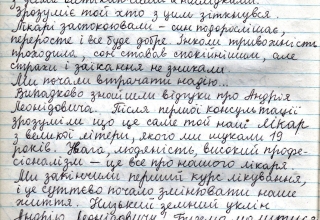 Зрозуміє той хто з цим зіткнувся.
Лікарі заспокоювали – син подорослішає,
переросте і все буде добре. Інколи тривожність
проходила, сон ставав спокійнішим, але
страхи і заїкання не зникали.
Ми почали втрачати надію...
Випадково знайшли відгуки про Андрія
Леонідовича. Після першої консультації
зрозуміли що це саме той наш Лікар
з великої літери, якого ми шукали
років. Увага, людяність, високий профе-
сіоналізм – це все про нашого лікаря.
Ми закінчили перший курс лікування,
і це суттєво почало змінювати наше
життя. Низький земний уклін
Андрію Леонідовичу!